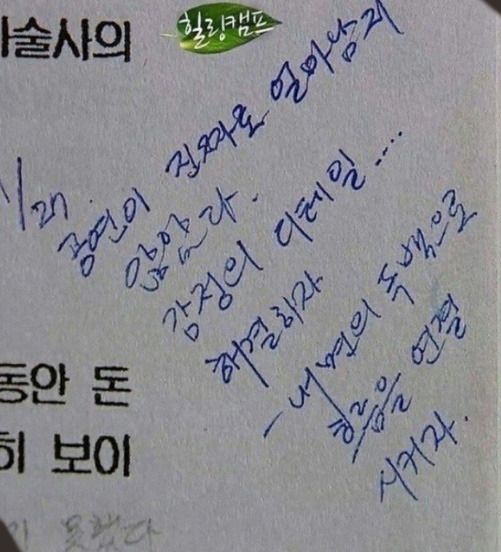 힐링캠프
술사의
1/27.
공연이 진짜로 얼마남지
않았다.
감정의 디테일....
해결하자
- 내면의 독백으로
흐름을 연결
시키자.
동안 돈
히 보이
못했다